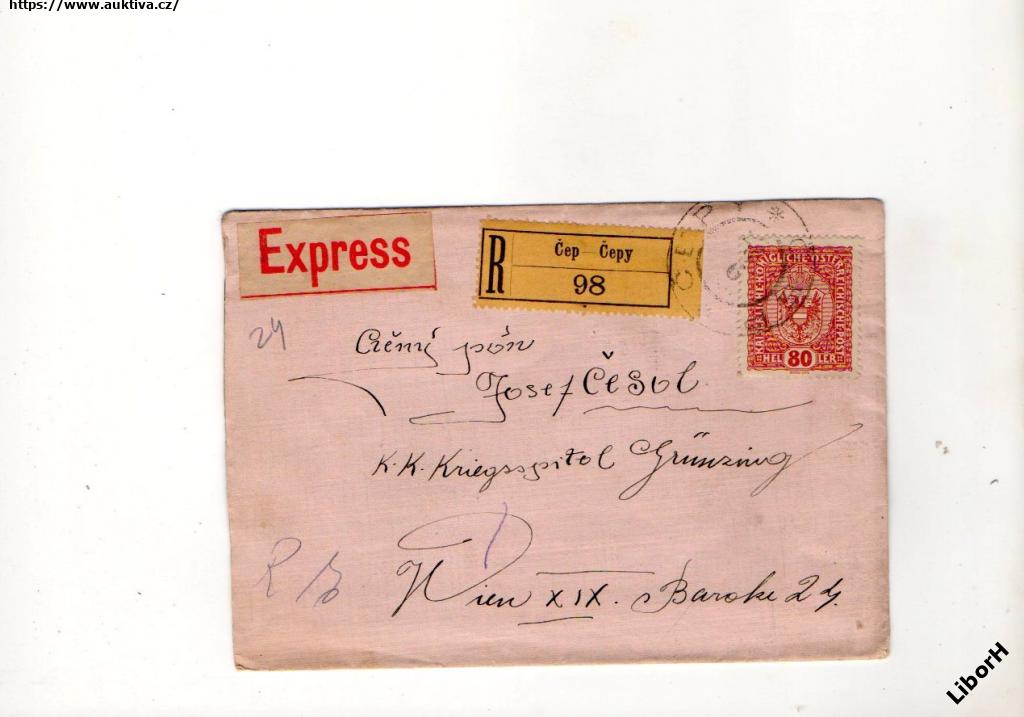 https://www.auktiva.cz/
Express
R
Čep Čepy
98
ČEPY *
KAISERLICHE KÖNIGLICHE ÖSTERREICHISCHE POST
HELLER 80
24
Josef Česol
K.K. Kriegsspitol Grünzing
R
Wien XIX. Baroke 24.
LiborH